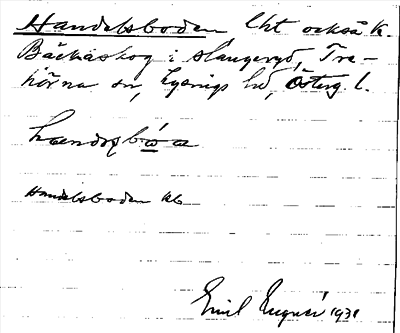 Handelsboden, Lht också k.
Bäckaskog i Slangeryd, Tre-
hörna sn, Lysings hd, Österg. l.
handsbωa
Handelsboden kb
Emil 1931